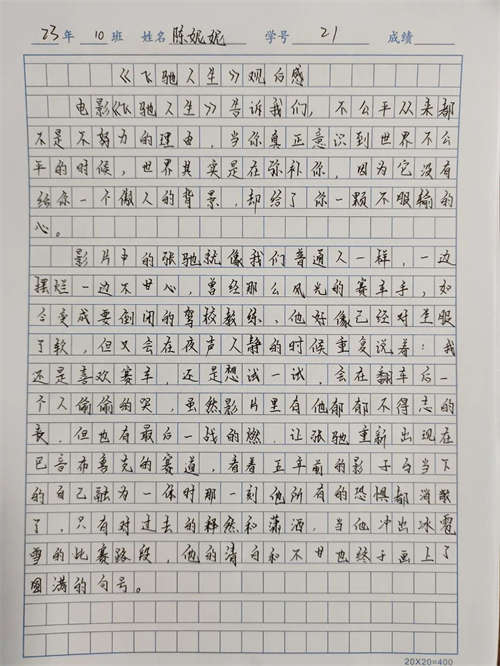 23年 10班 姓名 陈妮妮 学号 21 成绩
《飞驰人生》观后感
电影《飞驰人生》告诉我们，不公平从来都
不是不努力的理由，当你真正意识到世界不公
平的时候，世界其实是在弥补你，因为它没有
给你一个傲人的背景，却给了你一颗不服输的
心。
影片中的张驰就像我们普通人一样，一边
摆烂一边不甘心，曾经那么风光的赛车手，如
今变成要倒闭的驾校教练、他好像已经对生服
了软，但又会在夜声人静的时候重复说着：我
还是喜欢赛车，还是想试一试，会在翻车后一
个人偷偷的哭，虽然影片里有他郁郁不得志的
丧，但也有最后一战的燃，让张驰重新出现在
巴音布鲁克的赛道，看着五年前的影子与当下
的自己融为一体时那一刻他所有的恐惧都消散
了，只有对过去的释然和潇洒，当他冲出冰雹
雪的比赛路段，他的清白和不甘也终于画上了
圆满的句号。
20X20=400